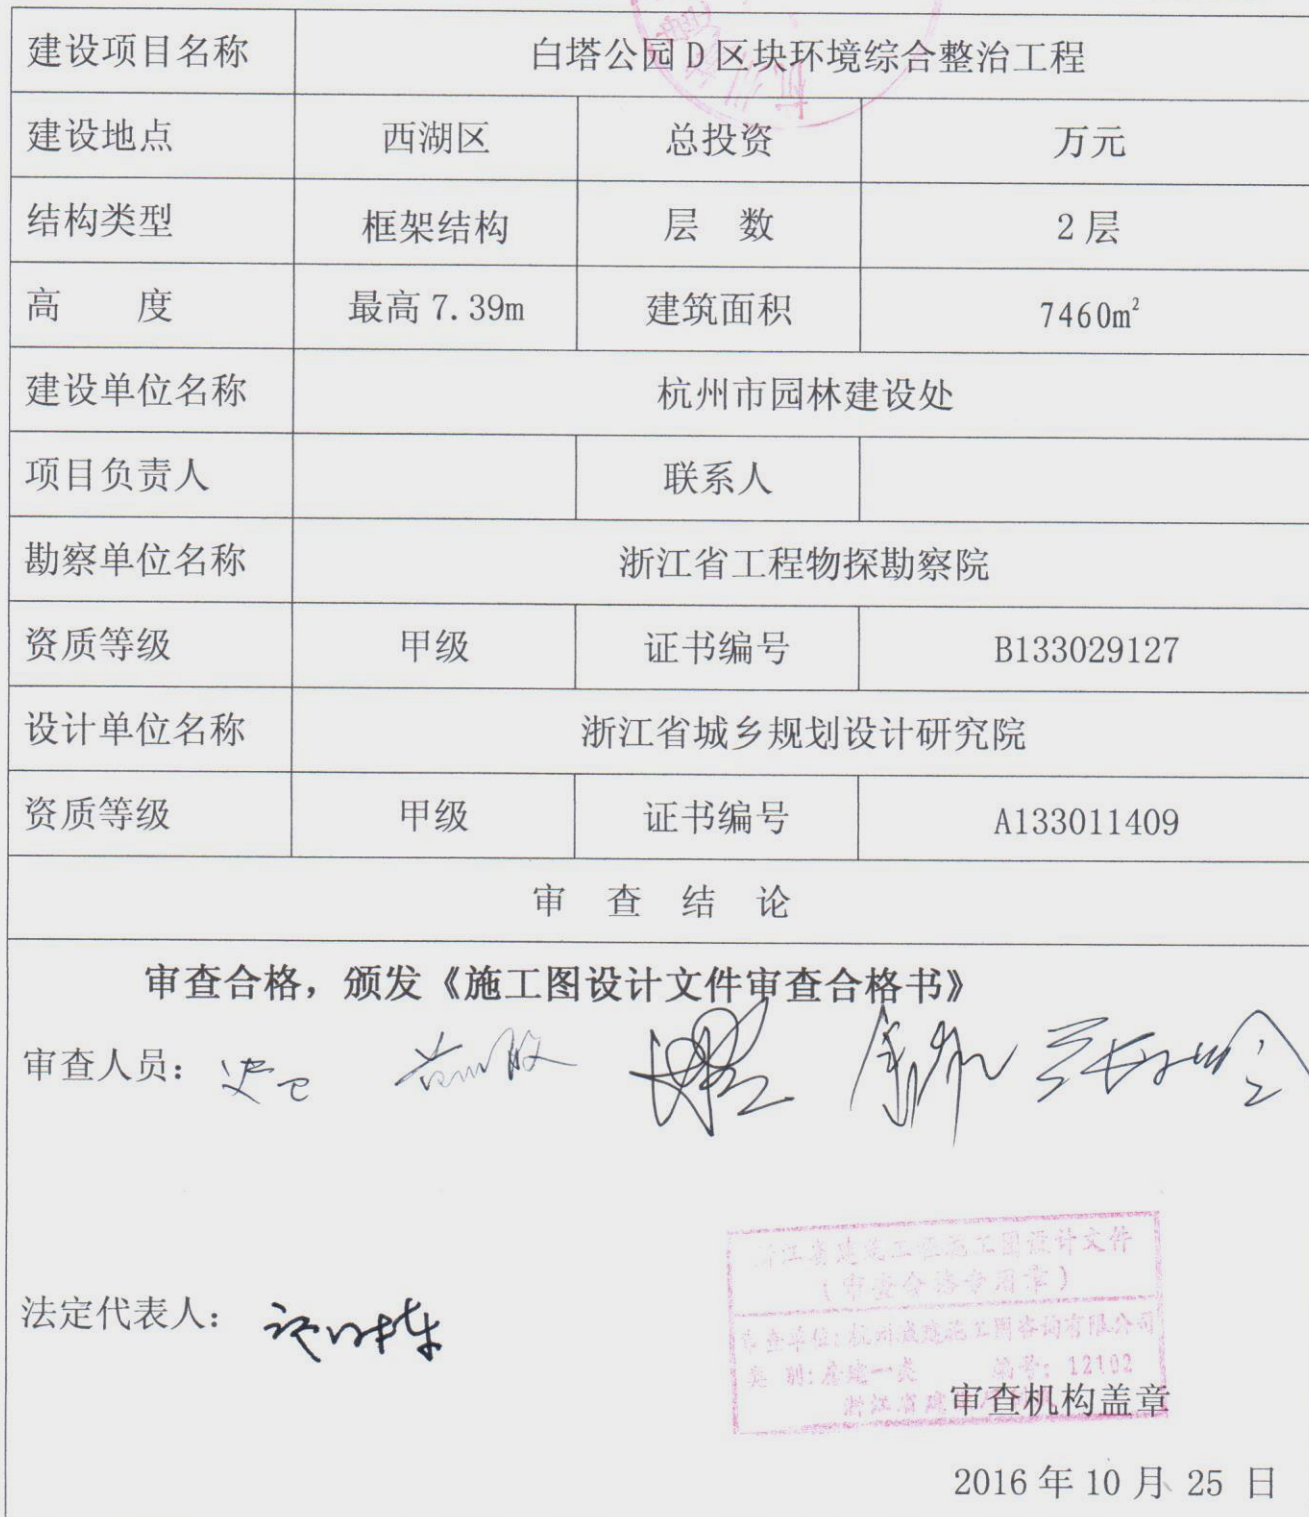 建设项目名称 白塔公园D区块环境综合整治工程
建设地点 西湖区 总投资 万元
结构类型 框架结构 层 数 2层
高 度 最高7.39m 建筑面积 7460m²
建设单位名称 杭州市园林建设处
项目负责人 联系人
勘察单位名称 浙江省工程物探勘察院
资质等级 甲级 证书编号 B133029127
设计单位名称 浙江省城乡规划设计研究院
资质等级 甲级 证书编号 A133011409
审 查 结 论
审查合格，颁发《施工图设计文件审查合格书》
审查人员：
法定代表人：
浙江省建筑工程施工图设计文件
（审查合格专用章）
审查单位：杭州 建施工图咨询有限公司
类 别：房建一类 编号：12102
浙江省建
审查机构盖章
2016年10月25日